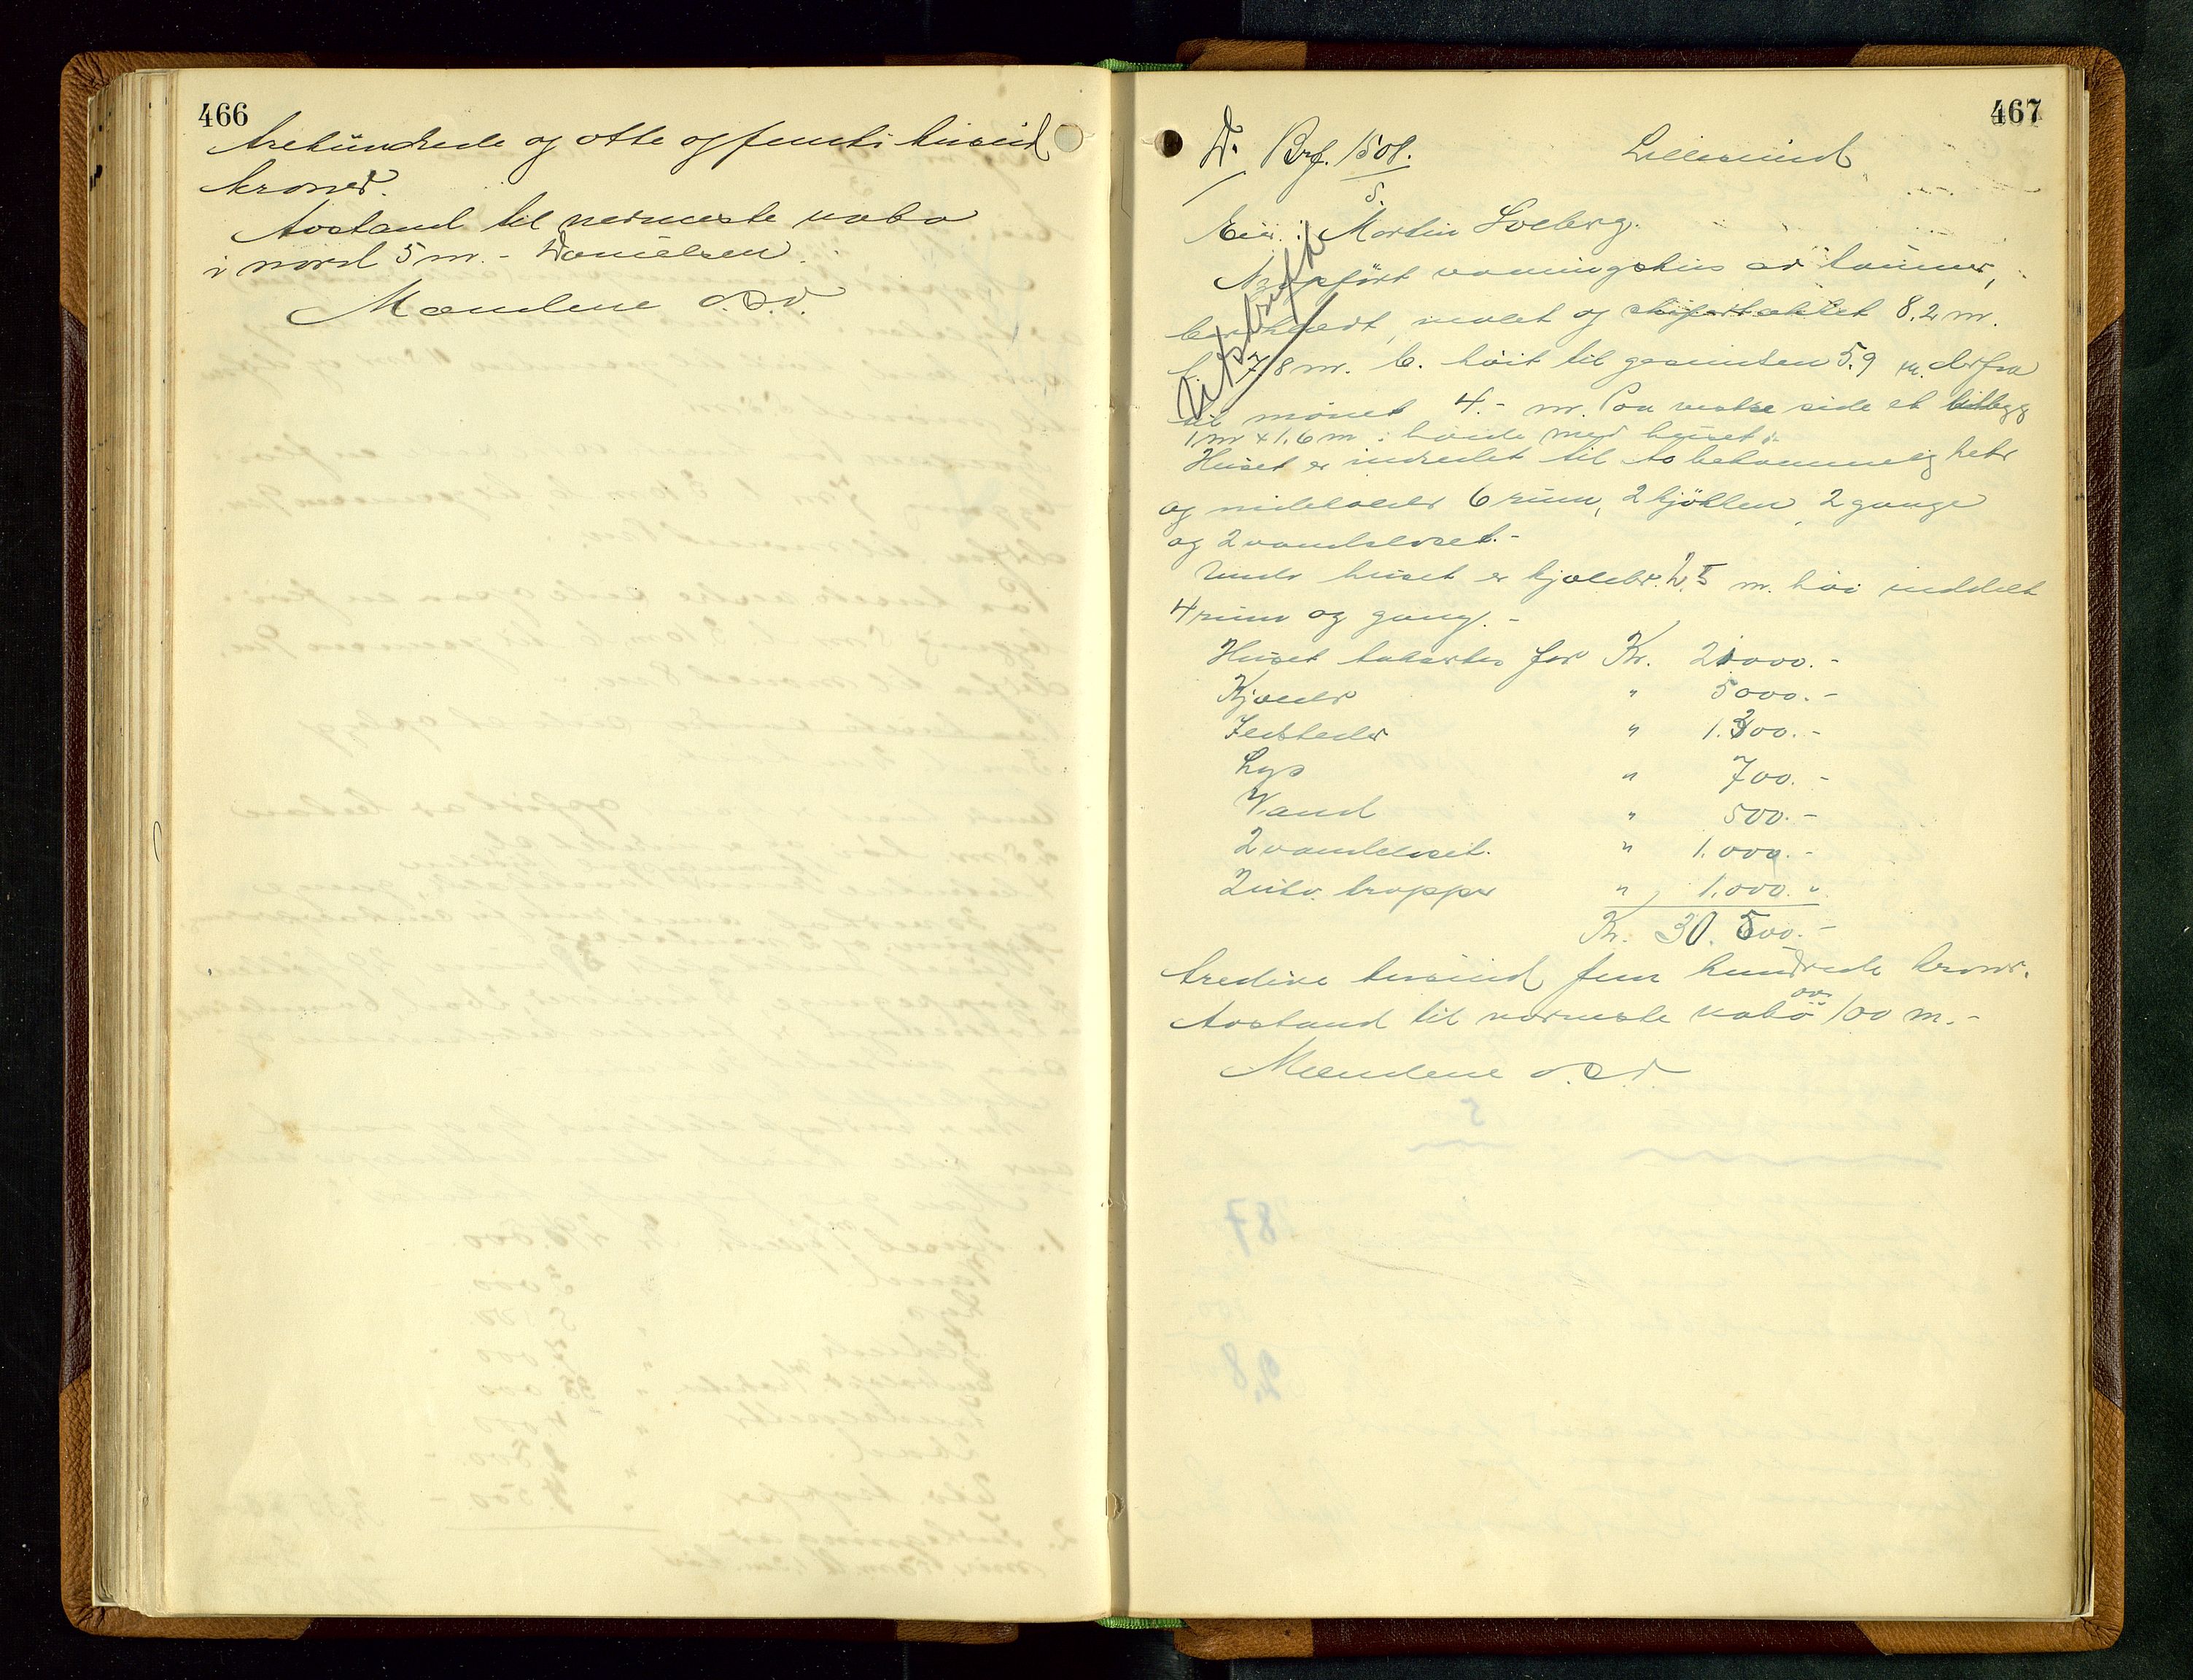 466
trehundrede og otte og femti tusind
kroner.
Avstand til nærmeste nabo
i nord 5 m. - Danielsen.
Mændene o.s.v.
467
D. Brf. 1501. Lillesund
5.
Eier: Martin Soeberg.
Utskrift
Nyopført vaaningshus av tømmer,
bordklædt, malet og skifertækket 8.2 m.
l. 7.8 m. b. høit til gesimsen 5.9 m. derfra
til mønet 4.- m. Paa vestre side et tilbygg
1 m x 1.6 m i høide med huset.
Huset er indredet til to bekvemmeligheter
og indeholder 6 rum, 2 kjøkken, 2 gange
og 2 vandcloset.-
Under huset er kjælder. 2.5 m. høi inddelt
4 rum og gang. -
Huset taksertes for Kr. 21000.-
Kjælder " 5000.-
Ildsteder " 1.300.-
Lys " 700.-
Vand " 500.-
2 vandcloset. " 1.000.-
Utv. trapper " 1.000. "
Kr. 30.500.-
tredive tusind fem hundrede kroner.
Avstand til nærmeste nabo over 100 m.-
Mændene o.s.v.